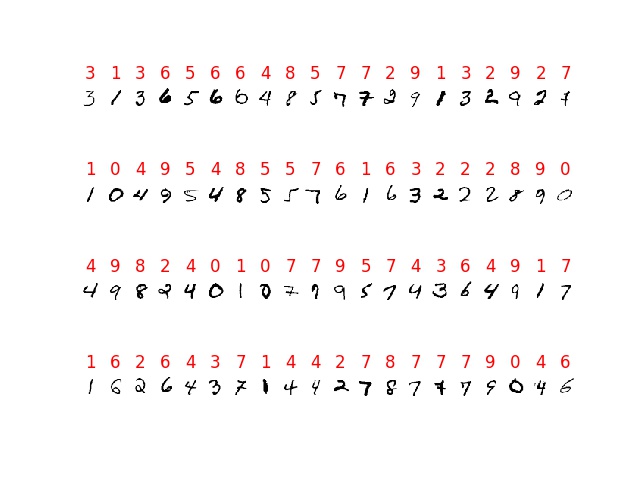 3 1 3 6 5 6 6 4 8 5 7 7 2 9 1 3 2 9 2 7
3 1 3 6 5 6 6 4 8 5 7 7 2 9 1 3 2 9 2 7
1 0 4 9 5 4 8 5 5 7 6 1 6 3 2 2 2 8 9 0
1 0 4 9 5 4 8 5 5 7 6 1 6 3 2 2 2 8 9 0
4 9 8 2 4 0 1 0 7 7 9 5 7 4 3 6 4 9 1 7
4 9 8 2 4 0 1 0 7 7 9 5 7 4 3 6 4 9 1 7
1 6 2 6 4 3 7 1 4 4 2 7 8 7 7 7 9 0 4 6
1 6 2 6 4 3 7 1 4 4 2 7 8 7 7 7 9 0 4 6